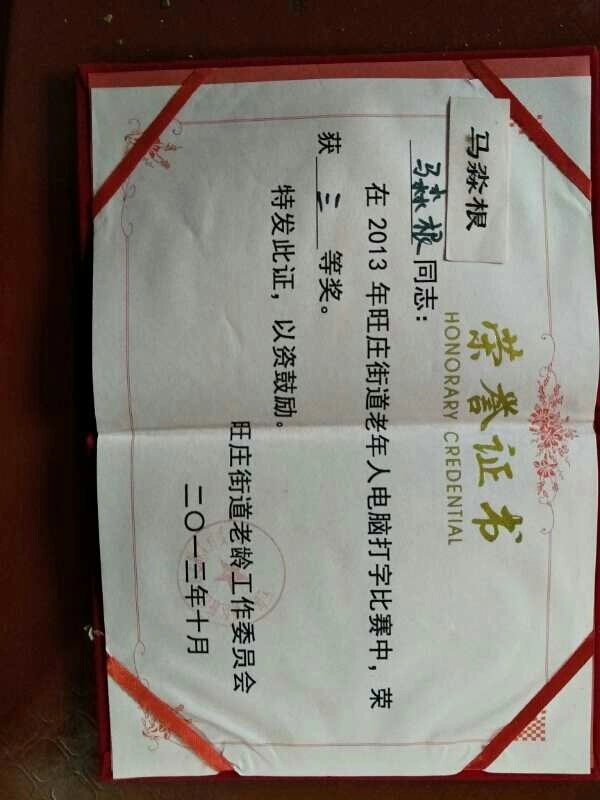 荣誉证书
HONORARY CREDENTIAL
马淼根
马淼根同志：
在2013年旺庄街道老年人电脑打字比赛中，荣
获二等奖。
特发此证，以资鼓励。
旺庄街道老龄工作委员会
二〇一三年十月